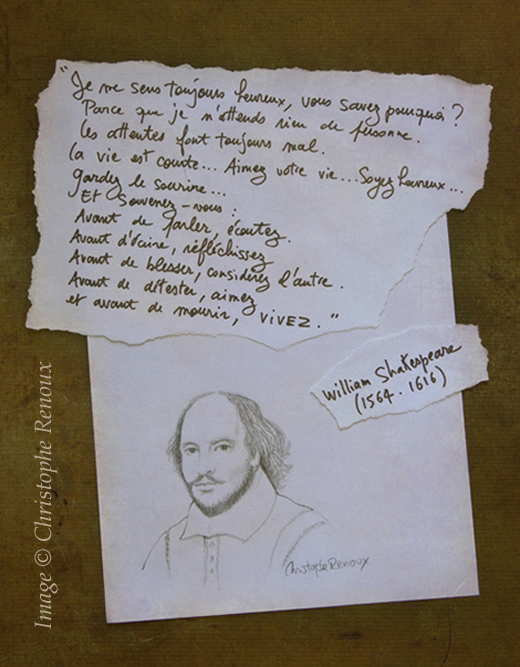 "Je me sens toujours heureux, vous savez pourquoi ?
Parce que je n'attends rien de personne.
Les attentes font toujours mal.
La vie est courte... Aimez votre vie... Soyez heureux...
gardez le sourire...
Et souvenez-vous :
Avant de parler, écoutez.
Avant d'écrire, réfléchissez
Avant de blesser, considérez l'autre.
Avant de détester, aimez
et avant de mourir, VIVEZ."
William Shakespeare
(1564. 1616)
Christophe Renoux
Image © Christophe Renoux